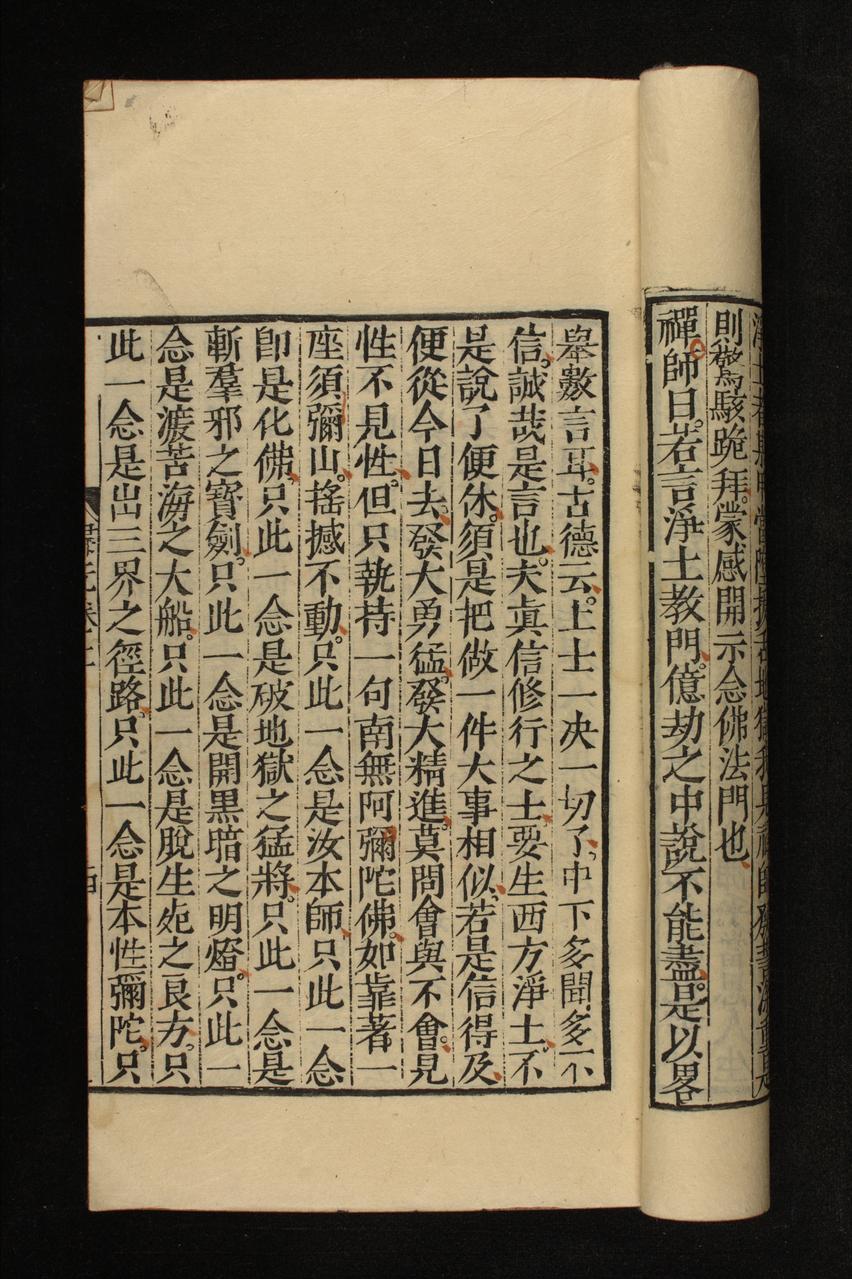 則驚駭跪拜。蒙感開示念佛法門也
禪師曰。若言淨土教門。億劫之中說不能盡。是以畧
舉數言耳。古德云。上士一决一切了。中下多聞多不
信。誠哉是言也。夫眞信修行之士。要生西方淨土。不
是說了便休。須是把做一件大事相似。若是信得及。
便從今日去。發大勇猛。發大精進。莫問會與不會。見
性不見性。但只執持一句南無阿彌陀佛。如靠著一
座須彌山。搖撼不動。只此一念是汝本師。只此一念
卽是化佛。只此一念是破地獄之猛將。只此一念是
斬羣邪之寶劍。只此一念是開黑暗之明燈。只此一
念是渡苦海之大船。只此一念是脫生死之良方。只
此一念是出三界之徑路。只此一念是本性彌陀。只